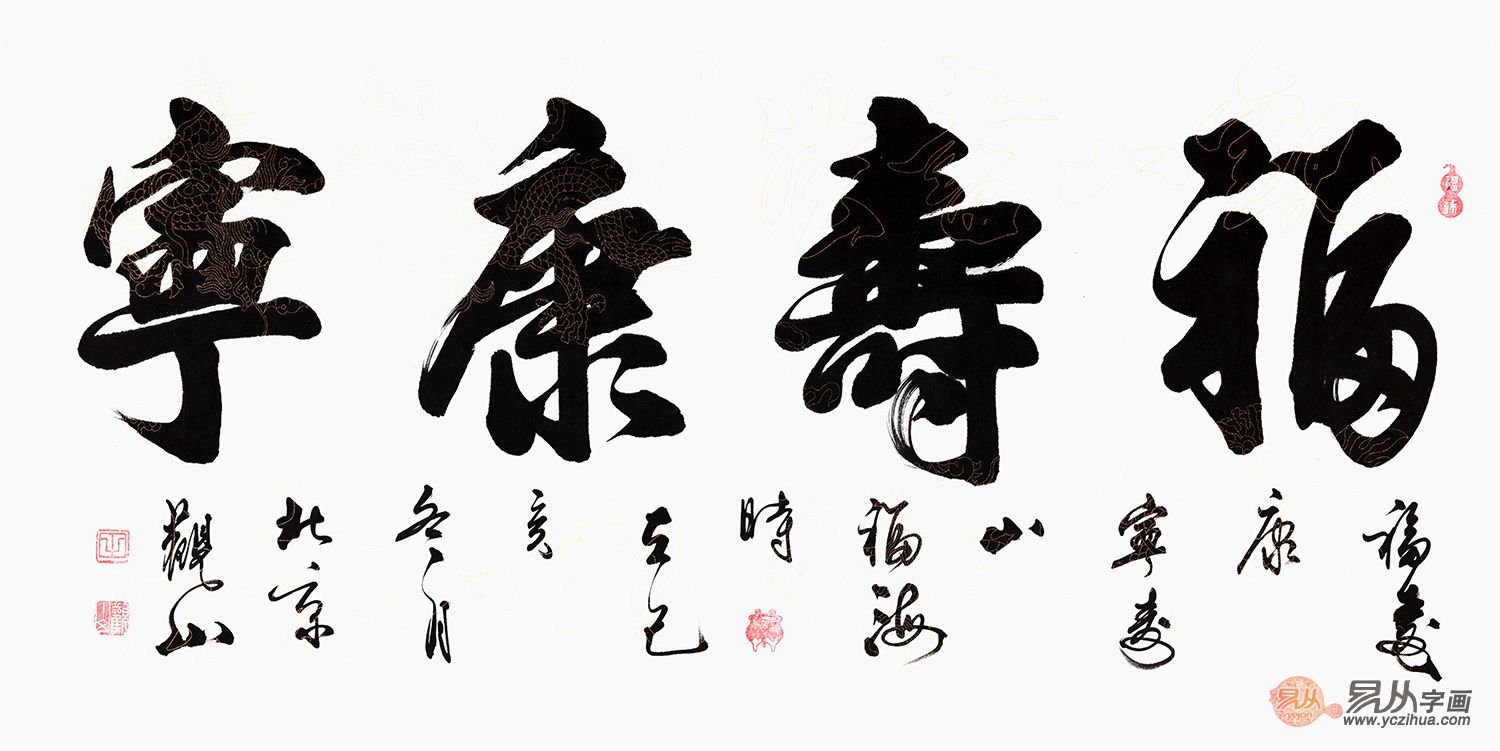 福壽康寧
福壽
康
寧壽
山
福海
時
在己
亥
冬月
北京
觀山
易从
易从字画
www.yczihua.com